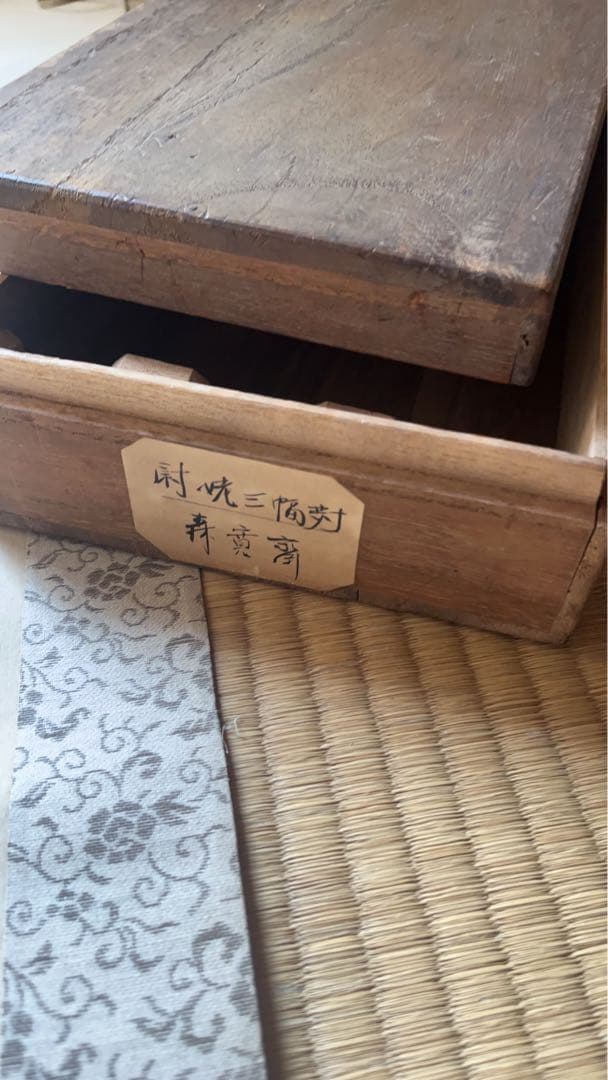 尉姥三幅対
森寛斎